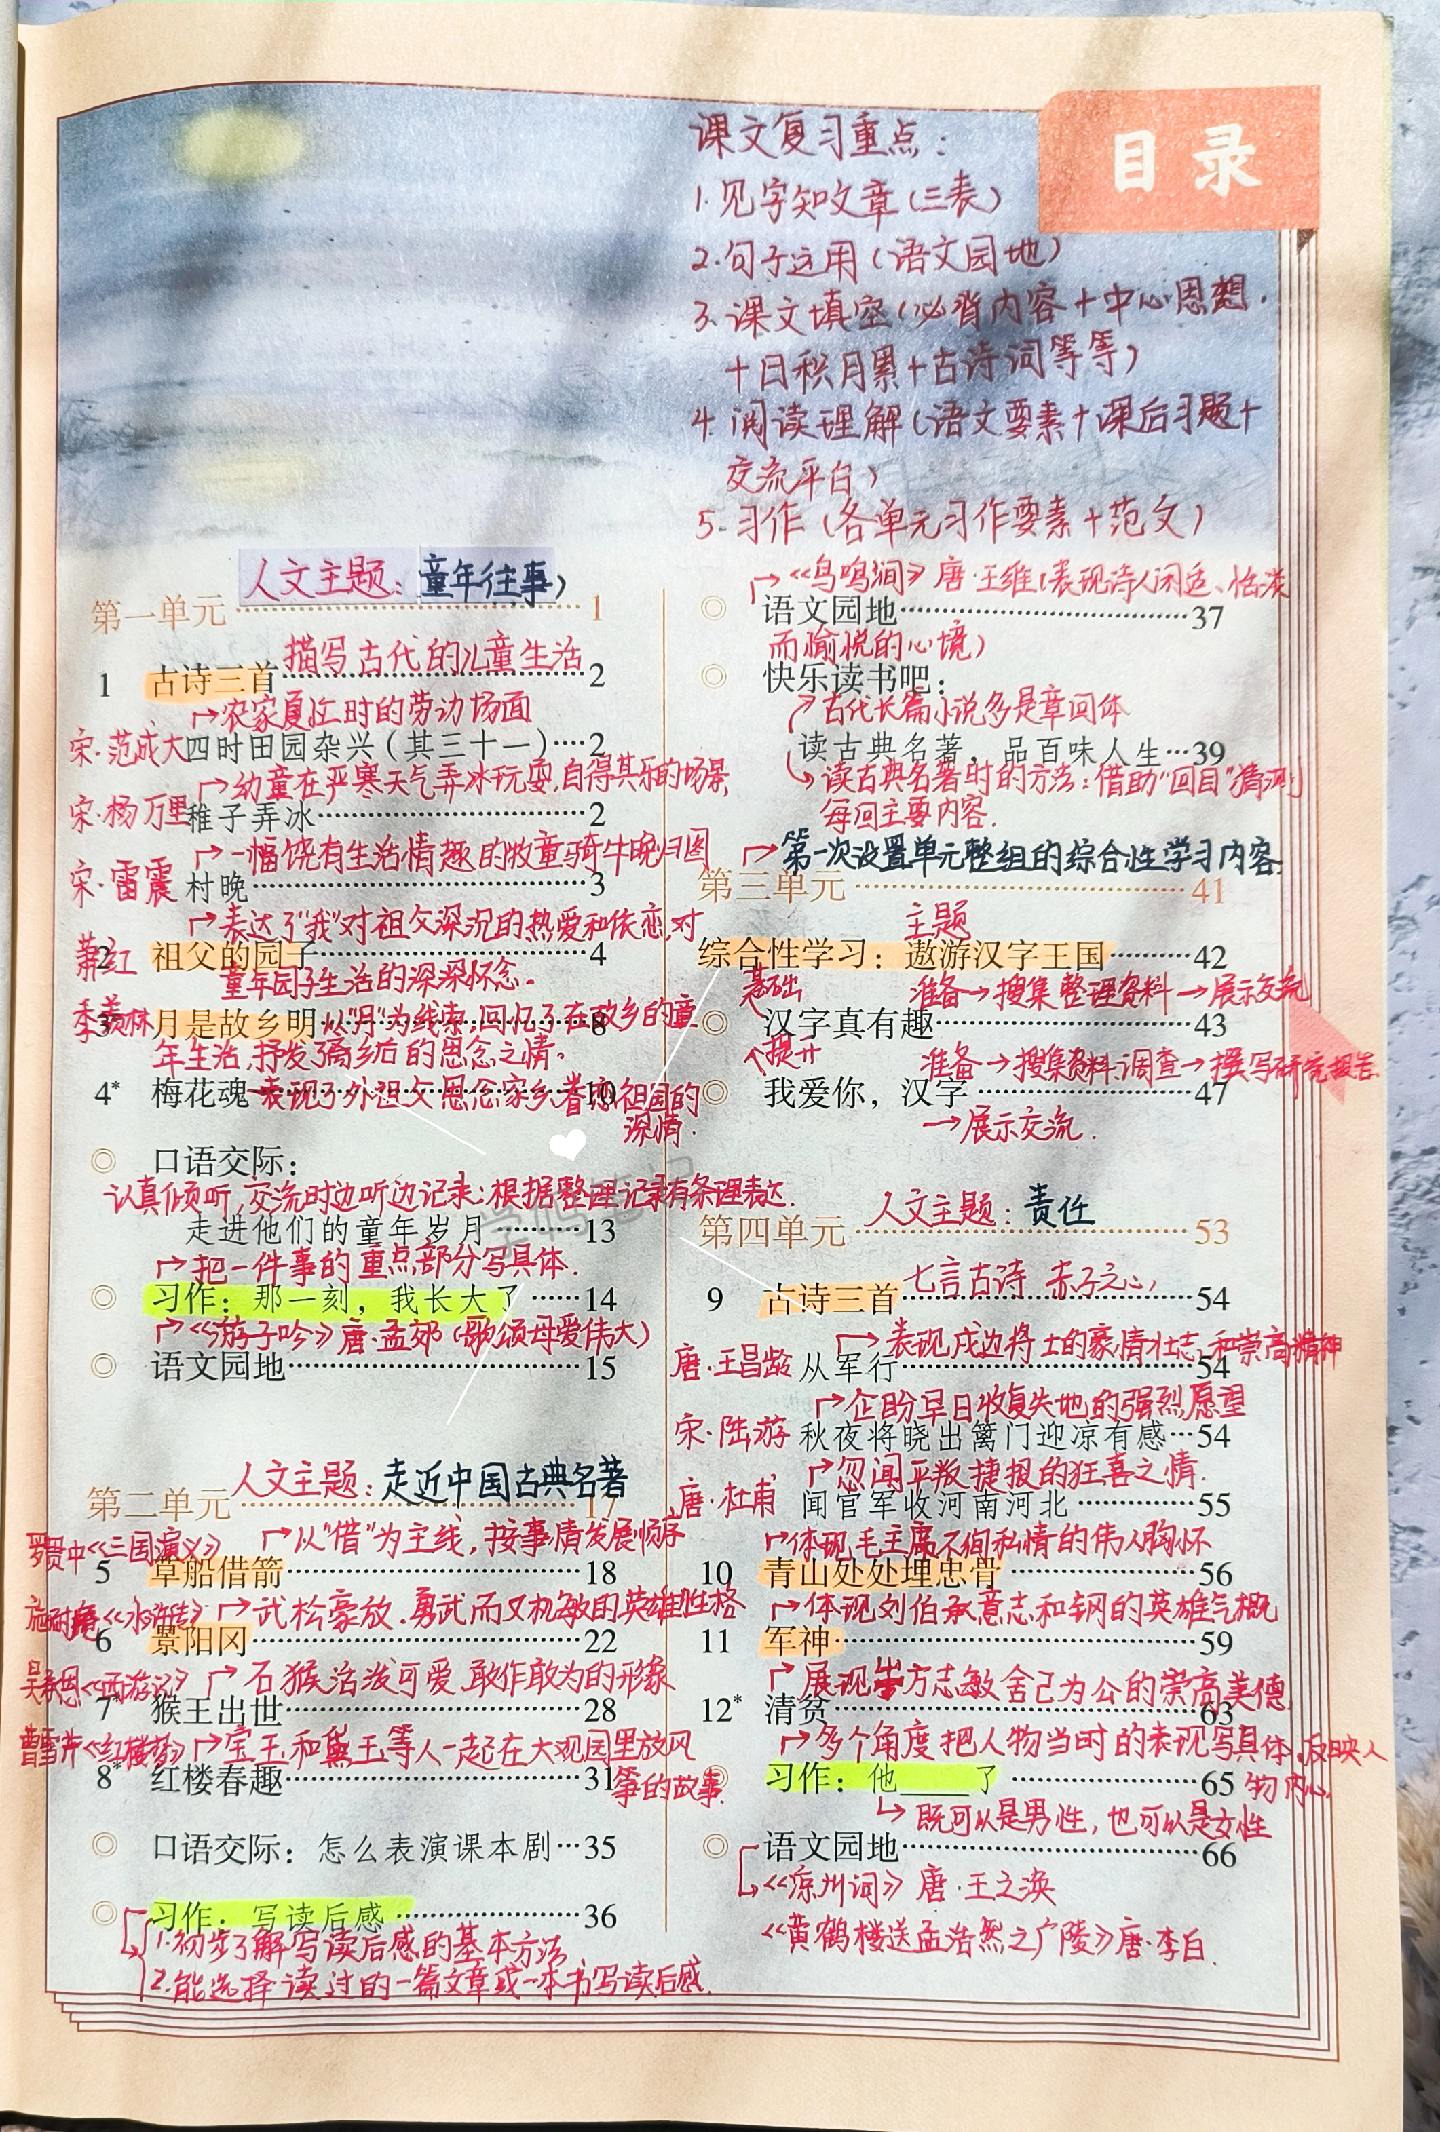 目录
课文复习重点：
1.见字知文章（三表）
2.句子运用（语文园地）
3.课文填空（必背内容+中心思想.
+日积月累+古诗词等等）
4.阅读理解（语文要素+课后习题+
交流平台）
5.习作（各单元习作要素+范文）
人文主题：童年往事）
第一单元 1
描写古代的儿童生活
1 古诗三首 2
农家夏忙时的劳动场面
宋·范成大 四时田园杂兴（其三十一） 2
幼童在严寒天气弄冰玩耍,自得其乐的场景
宋·杨万里 稚子弄冰 2
一幅饶有生活情趣的牧童骑牛晚归图
宋·雷震 村晚 3
表达了“我”对祖父深沉的热爱和依恋,对
萧红 2 祖父的园子 4
童年园子生活的深深怀念。
季羡林 3* 月是故乡明 以“月”为线索,回忆了在故乡的童 8
年生活,抒发了离乡后的思念之情。
4* 梅花魂 表现了外祖父思念家乡眷恋祖国的 10
深情.
口语交际：
认真倾听,交流时边听边记录;根据整理记录有条理表达.
走进他们的童年岁月 13
把一件事的重点部分写具体.
习作：那一刻，我长大了 14
《游子吟》唐·孟郊（歌颂母爱伟大）
语文园地 15
人文主题：走近中国古典名著
第二单元 17
罗贯中《三国演义》 以“借”为主线，按事情发展顺序
5 草船借箭 18
施耐庵《水浒传》 武松豪放.勇武而又机敏的英雄性格
6 景阳冈 22
吴承恩《西游记》 石猴活泼可爱.敢作敢为的形象
7* 猴王出世 28
曹雪芹《红楼梦》 宝玉和黛玉等人一起在大观园里放风
8* 红楼春趣 31 筝的故事.
口语交际：怎么表演课本剧 35
习作：写读后感 36
1.初步了解写读后感的基本方法
2.能选择读过的一篇文章或一本书写读后感.
《鸟鸣涧》唐·王维（表现诗人闲适、恬淡
语文园地 37
而愉悦的心境）
快乐读书吧：
古代长篇小说多是章回体
读古典名著，品百味人生 39
读古典名著时的方法：借助“回目”猜测
每回主要内容.
第一次设置单元整组的综合性学习内容.
第三单元 41
主题
综合性学习：遨游汉字王国 42
基础 准备→搜集整理资料→展示交流
汉字真有趣 43
提升 准备→搜集资料.调查→撰写研究报告.
我爱你，汉字 47
→展示交流.
人文主题：责任
第四单元 53
七言古诗 赤子之心
9 古诗三首 54
表现戍边将士的豪情壮志,和崇高精神
唐·王昌龄 从军行 54
企盼早日收复失地的强烈愿望
宋·陆游 秋夜将晓出篱门迎凉有感 54
忽闻平叛捷报的狂喜之情.
唐·杜甫 闻官军收河南河北 55
体现毛主席不徇私情的伟人胸怀
10 青山处处埋忠骨 56
体现刘伯承意志和钢的英雄气概
11 军神 59
展现方志敏舍己为公的崇高美德
12* 清贫 63
多个角度把人物当时的表现写具体.反映人
习作：他____了 65 物内心.
既可以是男性，也可以是女性
语文园地 66
《凉州词》唐·王之涣
《黄鹤楼送孟浩然之广陵》唐·李白.